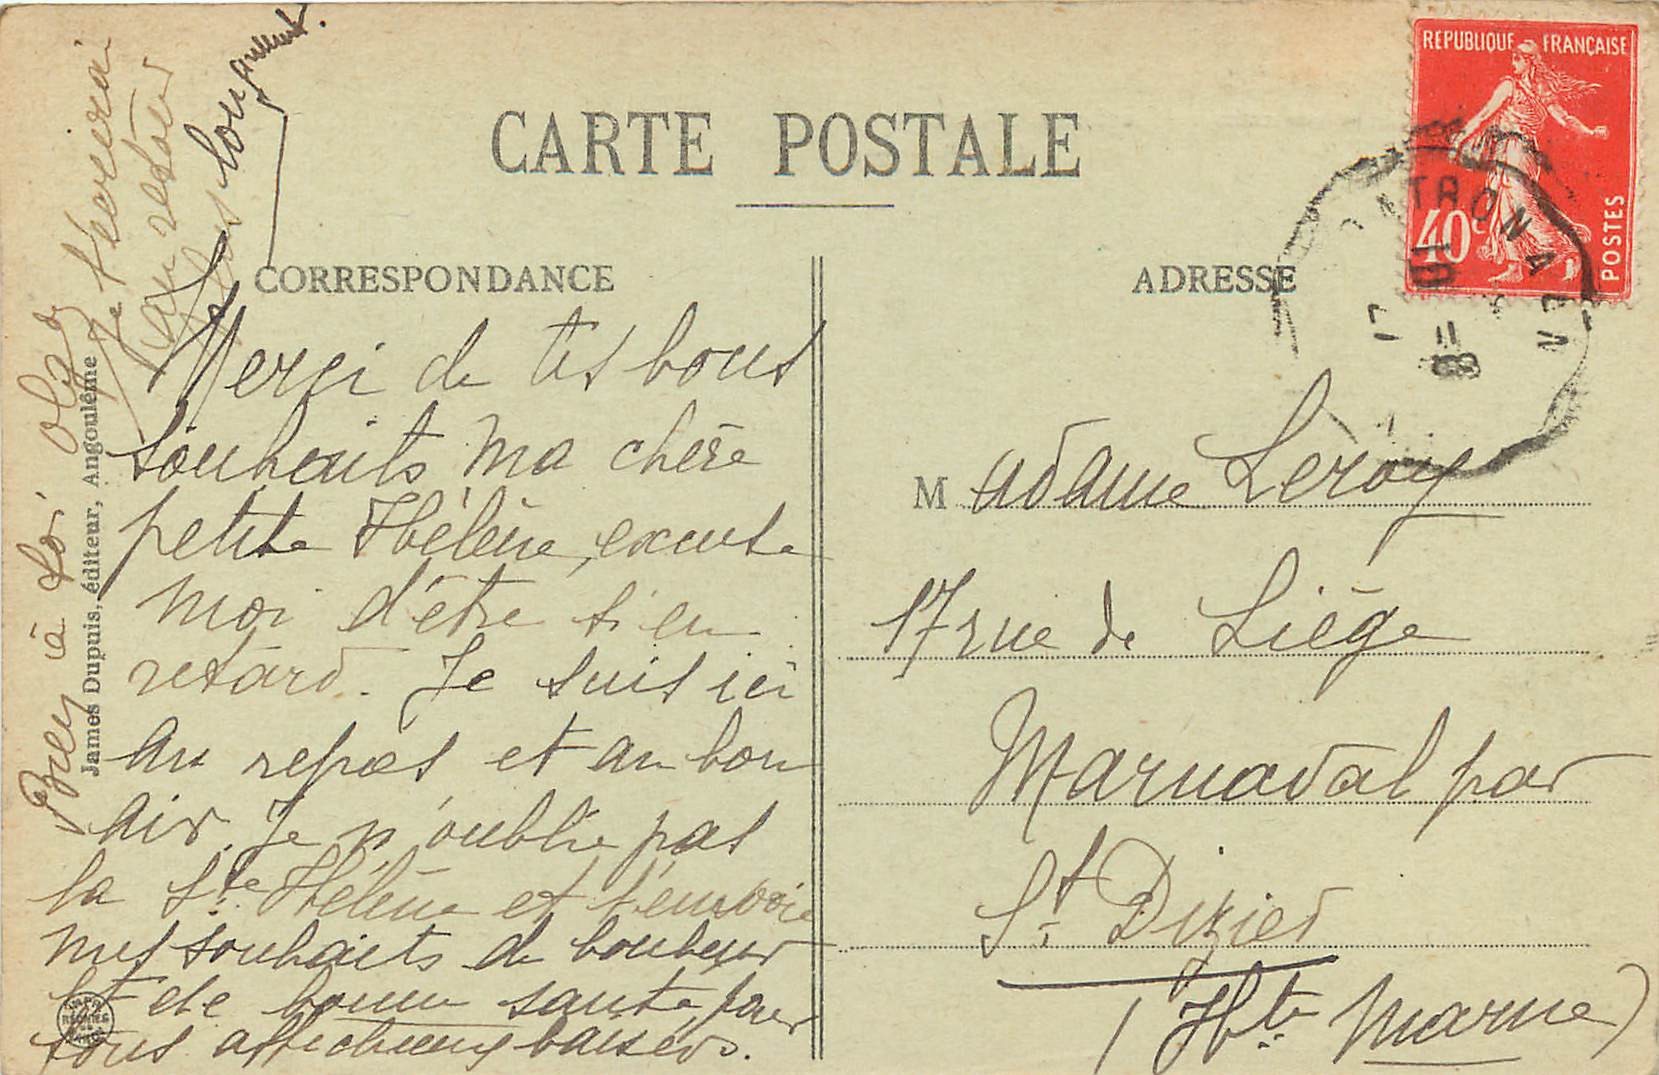 CARTE POSTALE
CORRESPONDANCE
ADRESSE
REPUBLIQUE FRANÇAISE
40c
POSTES
17
Merci de tes bons
souhaits ma chère
petite Hélène, excuse
moi d'être si en
retard. Je suis ici
au repos et au bon
air. Je n'oublie pas
la Ste Hélène et t'envoie
mes souhaits de bonheur
et de bonne santé, pour
tous affectueux baisers.
Bien à toi Olga
Je t'écrirai
au retour
plus longuement.
Madame Leroy
17 rue de Liège
Marnaval par
St Dizier
(Hte Marne)
James Dupuis, éditeur, Angoulême